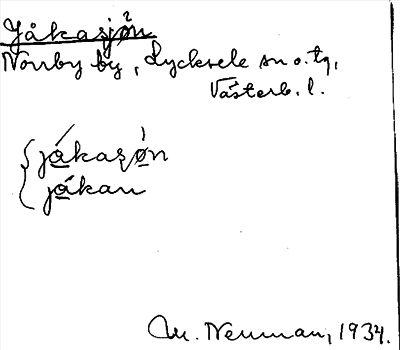 Jåkasjön
Norrby by, Lycksele sn o. tg,
Västerb. l.
jåkasøn
jåkan
M. Neuman, 1934.